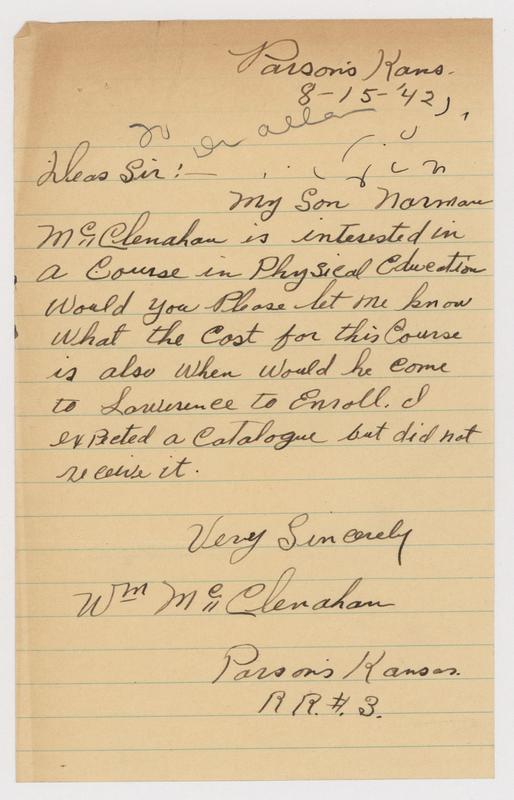 Parsons Kans.
8-15-'42
To Dr Allen
Dear Sir:—
My Son Norman
McClenahan is interested in
a Course in Physical Education
Would you Please let me know
What the Cost for this Course
is also When Would he come
to Lawerence to Enroll. I
expected a Catalogue but did not
receive it.
Very Sincerely
Wm McClenahan
Parsons Kansas.
R R. #. 3.